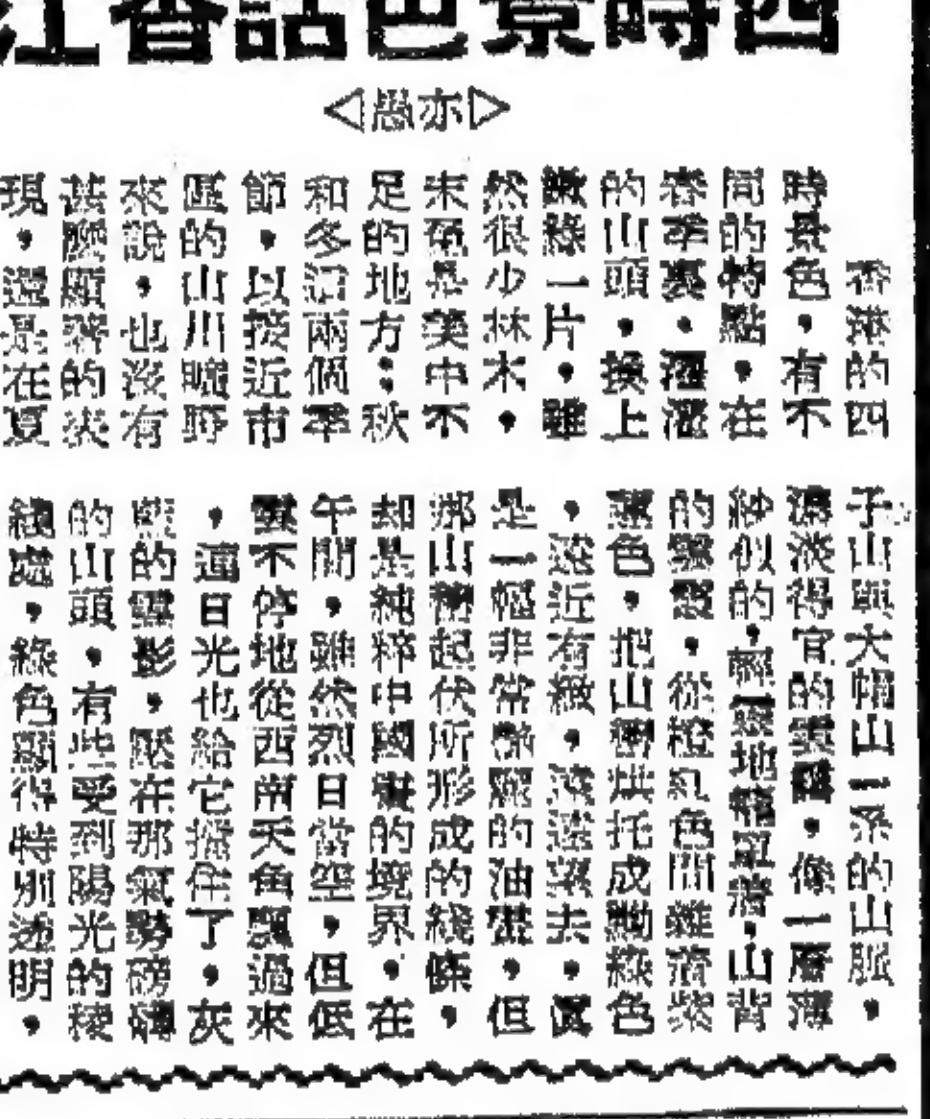 四時景色話香江
◁亦愚▷
香港的四
時景色，有不
同的特點，在
春季裏，濕濕
的山頭，換上
嫩綠一片，雖
然很少林木，
未免是美中不
足的地方；秋
和冬這兩個季
節，以接近市
區的山川曠野
來說，也沒有
甚麼顯著的表
現，還是在夏
子山與大帽山一系的山脈，
濃淡得宜的雲霧，像一層薄
紗似的，輕輕地籠罩着，山背
的雲霞，從橙紅色間雜着紫
藍色，把山巒烘托成黝綠色
，遠近有緻，遠遠望去，眞
是一幅非常艷麗的油畫，但
那山巒起伏所形成的綫條，
却是純粹中國畫的境界，在
午間，雖然烈日當空，但低
雲不停地從西南天角飄過來
，連日光也給它擋住了，灰
藍的雲影，壓在那氣勢磅礴
的山頭，有些受到陽光的稜
綫處，綠色顯得特別透明，